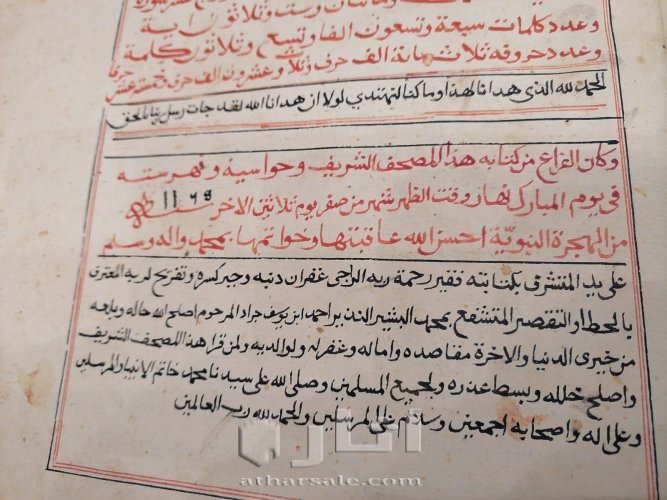 ومائتان وست وثلاثون اية
وعدد كلمات سبعة وتسعون الفا وتسع وثلاثون كلمة
وعدد حروفه ثلاثمائة الف حرف وثلاث وعشرون الف حرف وخمسة عشر حرفا
الحمد لله الذي هدانا لهذا وما كنا لنهتدي لولا ان هدانا الله لقد جات رسل ربنا بالحق
وكان الفراغ من كتابه هذا المصحف الشريف وحواسية وفهرسته
في يوم المبارك نهار وقت الظهر شهر من صفر يوم ثلاثين الاخر سنه ١١٦٥
من الهجرة النبوية احسن الله عاقبتها وخواتمها بمحمد واله وسلم
على يد المتشرف بكتابته فقير رحمة ربه الراجي غفران ذنبه وجبر كسره وتفريج كربه المعترف
بالخطا والتقصير المتشفع بمحمد البشير النذير احمد ابن يوسف جراد المرحوم اصلح الله حاله وبلغه
من خيري الدنيا والاخرة مقاصده واماله وغفر له ولوالديه ولمن قرا هذا المصحف الشريف
واصلح خلله وبسط عذره ولجميع المسلمين وصلى الله على سيدنا محمد خاتم الانبيا والمرسلين
وعلى اله واصحابه اجمعين وسلام على المرسلين والحمد لله رب العالمين
آثار
atharsale.com